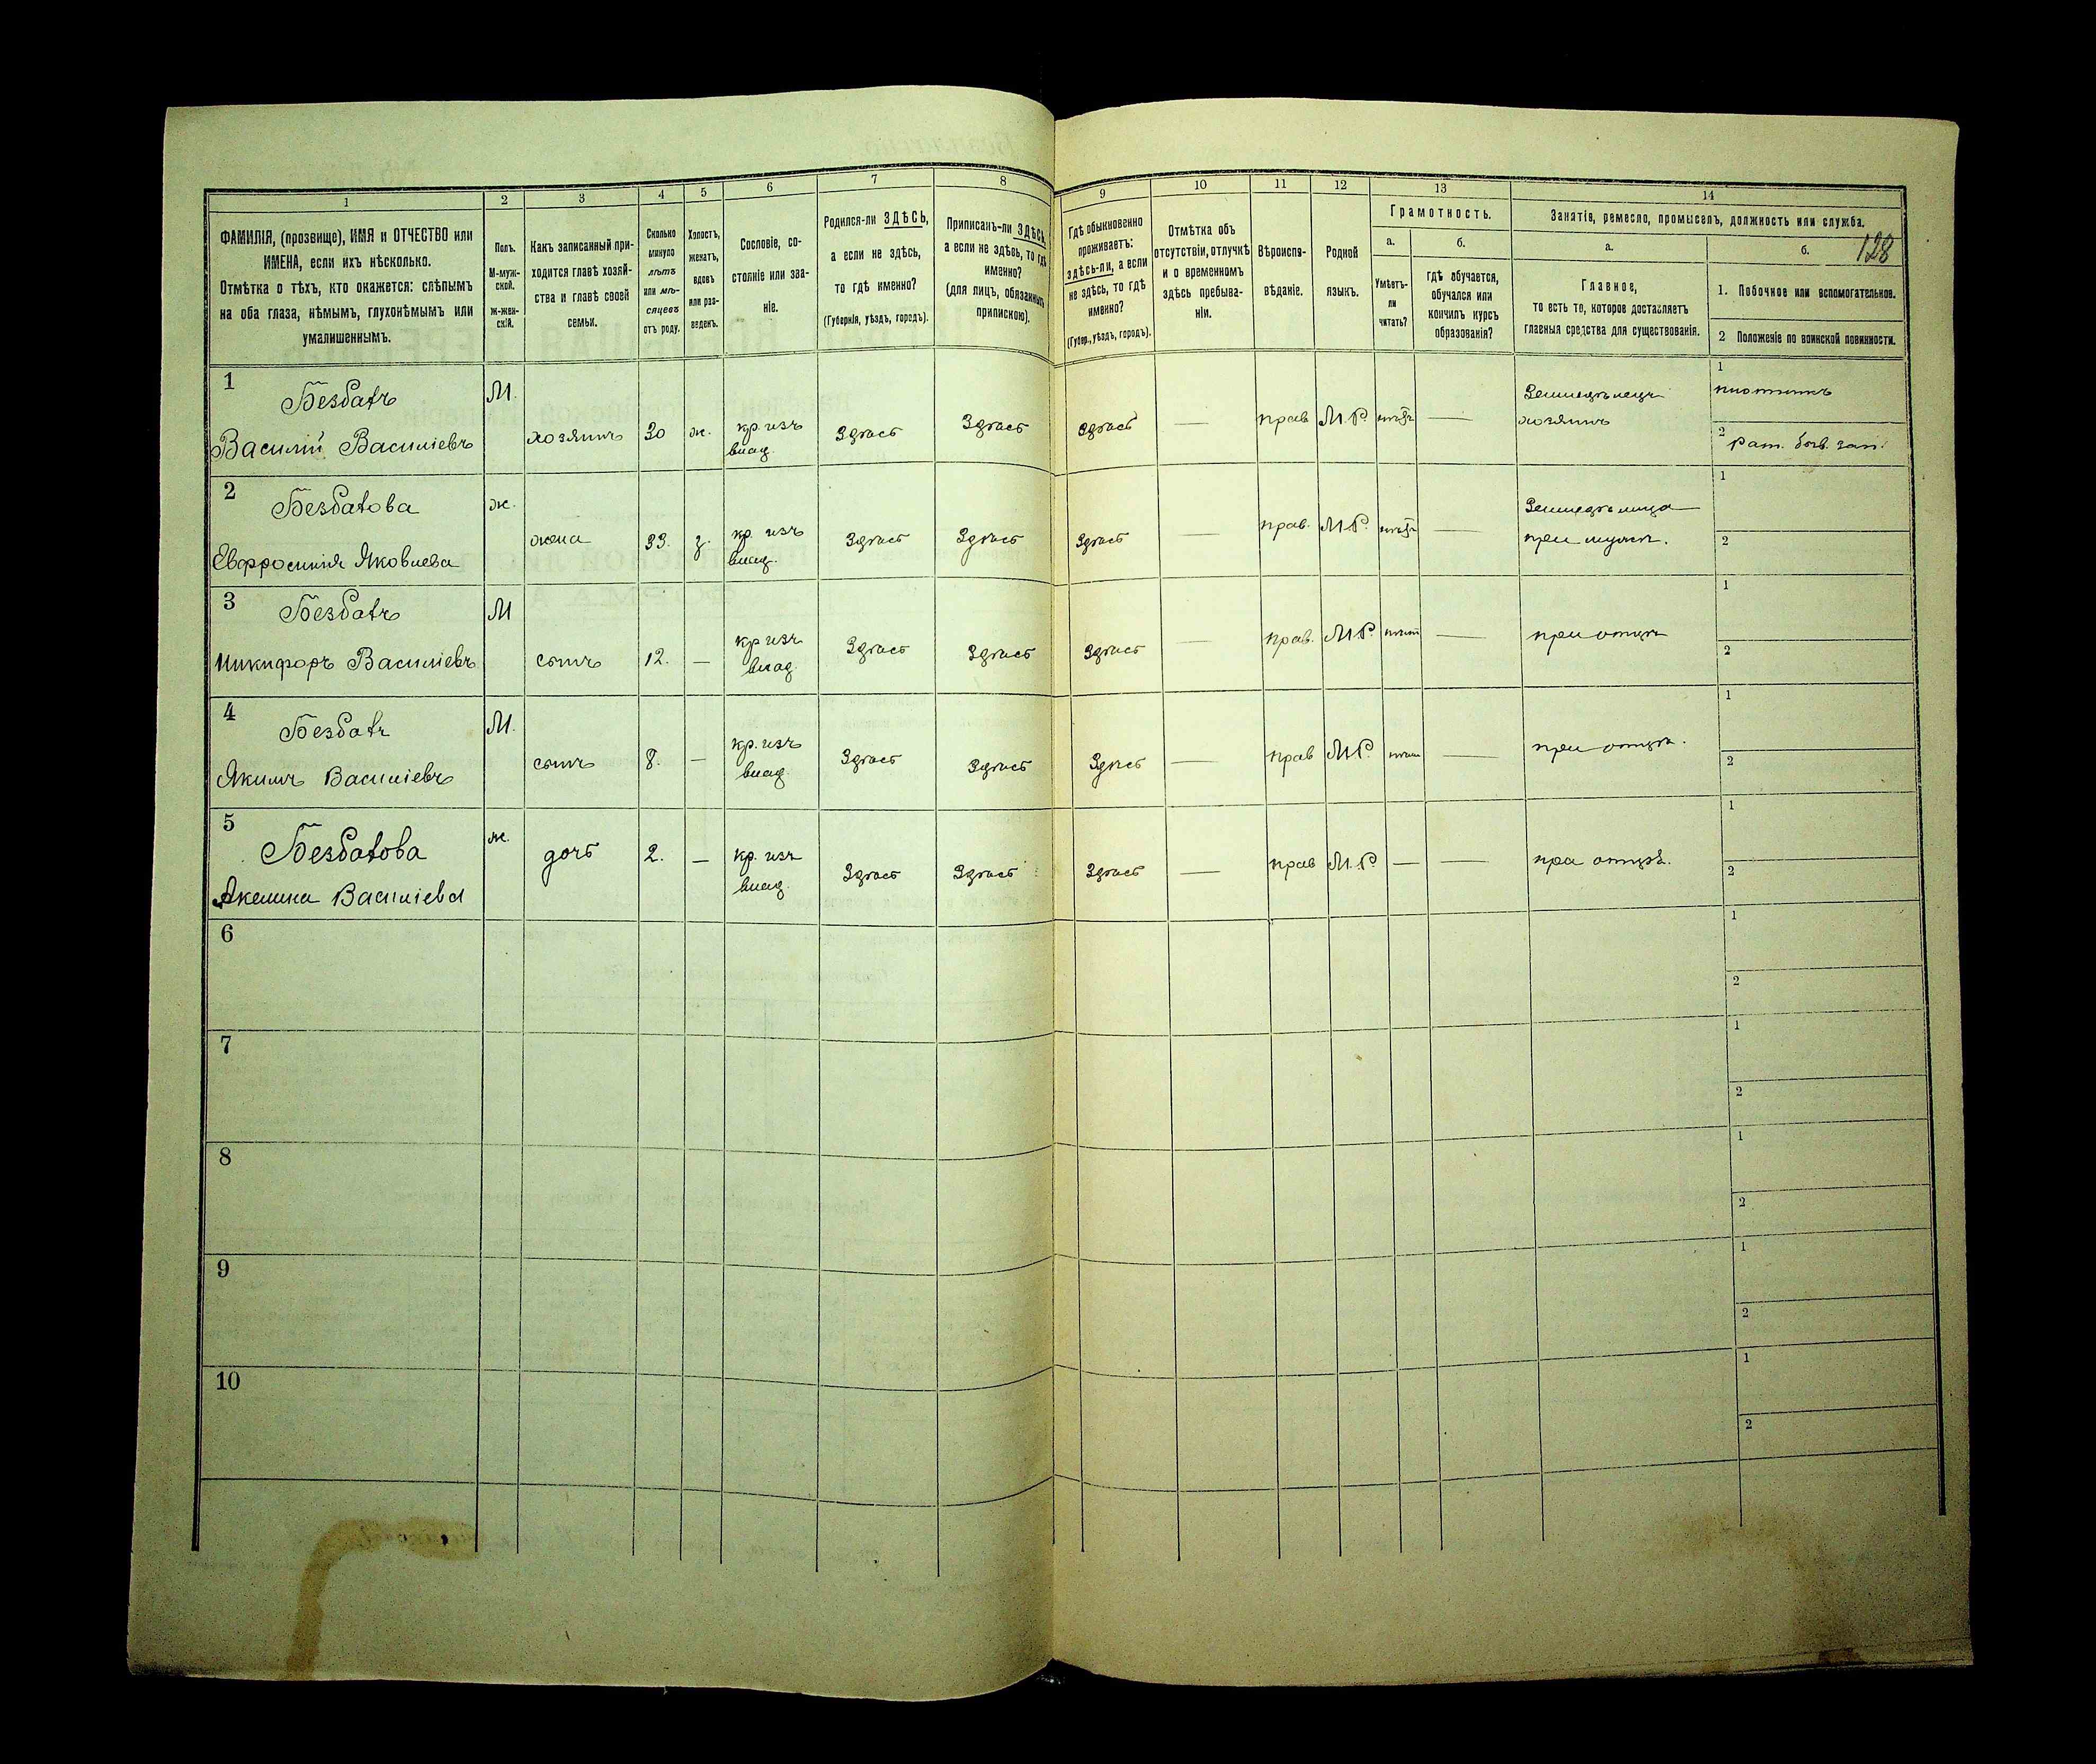 1
2
3
4
5
6
7
8
ФАМИЛІЯ, (прозвище), ИМЯ и ОТЧЕСТВО или
ИМЕНА, если ихъ нѣсколько.
Отмѣтка о тѣхъ, кто окажется: слѣпымъ
на оба глаза, нѣмымъ, глухонѣмымъ или
умалишеннымъ.
Полъ.
М-муж-
ской.
Ж-жен-
скій.
Какъ записанный при-
ходится главѣ хозяй-
ства и главѣ своей
семьи.
Сколько
минуло
лѣтъ
или мѣ-
сяцевъ
отъ роду.
Холостъ,
женатъ,
вдовъ
или раз-
веденъ.
Сословіе, со-
стояніе или зва-
ніе.
Родился-ли ЗДѢСЬ,
а если не здѣсь,
то гдѣ именно?
(Губернія, уѣздъ, городъ).
Приписанъ-ли ЗДѢСЬ,
а если не здѣсь, то гдѣ
именно?
(для лицъ, обязанныхъ
припискою).
9
10
11
12
13
14
Гдѣ обыкновенно
проживаетъ:
здѣсь-ли, а если
не здѣсь, то гдѣ
именно?
(Губер., уѣздъ, городъ).
Отмѣтка объ
отсутствіи, отлучкѣ
и о временномъ
здѣсь пребыва-
ніи.
Вѣроиспо-
вѣданіе.
Родной
языкъ.
Грамотность.
а.
б.
Умѣетъ-
ли
читать?
гдѣ обучается,
обучался или
кончилъ курсъ
образованія?
Занятіе, ремесло, промыселъ, должность или служба.
а.
б.
128
Главное,
то есть то, которое доставляетъ
главныя средства для существованія.
1. Побочное или вспомогательное.
2 Положеніе по воинской повинности.
1
Безбатъ
Василій Василіевъ
М.
хозяинъ
30
ж.
кр. изъ
влад.
Здѣсь
Здѣсь
Здѣсь
—
прав
М.Р.
нѣтъ
—
Земледѣлецъ
хозяинъ
1
плотникъ
2
Рат.
2
Безбатова
Евфросинія Яковлева
ж.
жена
33.
з.
кр. изъ
влад.
Здѣсь
Здѣсь
Здѣсь
—
прав.
М.Р.
нѣтъ
—
при мужѣ.
1
2
3
Безбатъ
Никифоръ Василіевъ
М
сынъ
12.
—
кр изъ
влад.
Здѣсь
Здѣсь
Здѣсь
—
прав.
М.Р.
нѣт
—
при отцѣ
1
2
4
Безбатъ
Якимъ Василіевъ
М.
сынъ
8.
—
кр. изъ
влад.
Здѣсь
Здѣсь
Здѣсь
—
прав
М.Р.
нѣт
—
при отцѣ.
1
2
5
Безбатова
Акелина Василіева
ж.
дочь
2.
—
кр. изъ
влад.
Здѣсь
Здѣсь
Здѣсь
—
прав
М.Р.
—
—
при отцѣ.
1
2
6
1
2
7
1
2
8
1
2
9
1
2
10
1
2